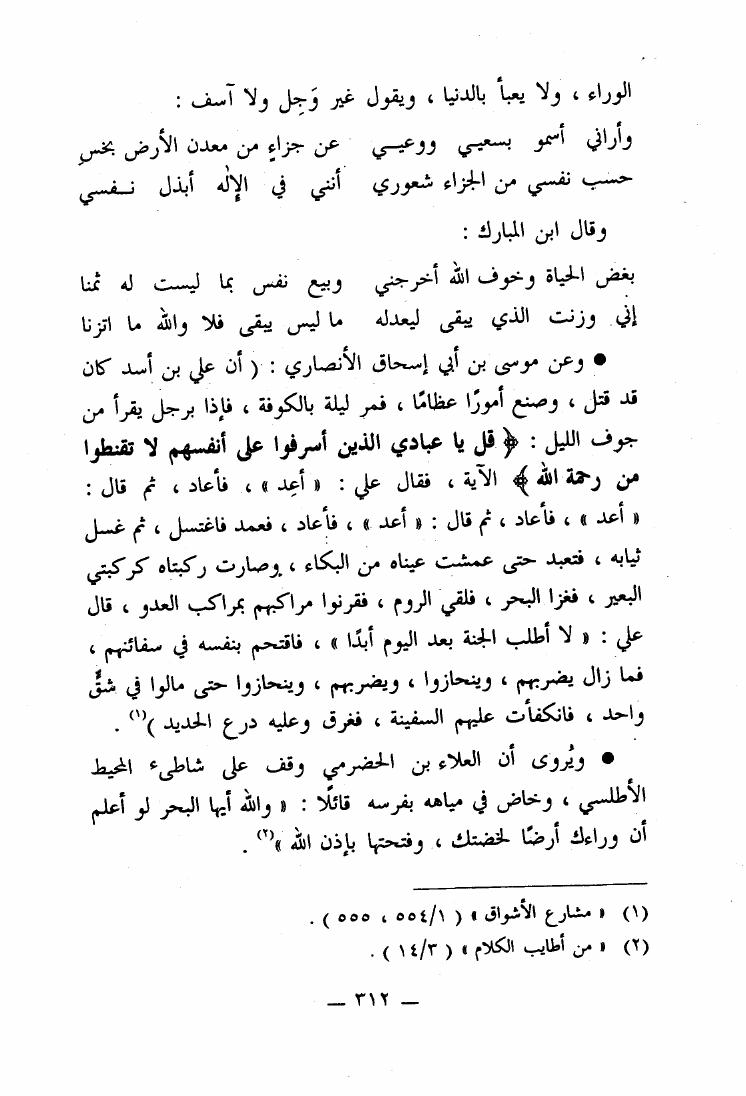 الوراء ، ولا يعبأ بالدنيا ، ويقول غير وَجِل ولا آسف :
وأراني أسمو بسعيـي ووعيـي عن جزاءٍ من معدن الأرض بخسِ
حسب نفسي من الجزاء شعوري أنني في الإلٰه أبذل نـفـسي
وقال ابن المبارك :
بغض الحياة وخوف الله أخرجني وبيع نفس بما ليست له ثمنا
إني وزنت الذي يبقى ليعدله ما ليس يبقى فلا والله ما اتزنا
● وعن موسى بن أبي إسحاق الأنصاري : ( أن علي بن أسد كان
قد قتل ، وصنع أمورًا عظامًا ، فمر ليلة بالكوفة ، فإذا برجل يقرأ من
جوف الليل : ﴿ قل يا عبادي الذين أسرفوا على أنفسهم لا تقنطوا
من رحمة الله ﴾ الآية ، فقال علي : « أعِد » ، فأعاد ، ثم قال :
« أعد » ، فأعاد ، ثم قال : « أعد » ، فأعاد ، فعمد فاغتسل ، ثم غسل
ثيابه ، فتعبد حتى عمشت عيناه من البكاء ، وصارت ركبتاه كركبتي
البعير ، فغزا البحر ، فلقي الروم ، فقرنوا مراكبهم بمراكب العدو ، قال
علي : « لا أطلب الجنة بعد اليوم أبدًا » ، فاقتحم بنفسه في سفائنهم ،
فما زال يضربهم ، وينحازوا ، ويضربهم ، وينحازوا حتى مالوا في شقٍّ
واحد ، فانكفأت عليهم السفينة ، فغرق وعليه درع الحديد )(١) .
● ويُروى أن العلاء بن الحضرمي وقف على شاطىء المحيط
الأطلسي ، وخاض في مياهه بفرسه قائلًا : « والله أيها البحر لو أعلم
أن وراءك أرضًا لخضتك ، وفتحتها بإذن الله »(٢) .
(١) « مشارع الأشواق » ( ٥٥٤/١ ، ٥٥٥ ) .
(٢) « من أطايب الكلام » ( ١٤/٣ ) .
— ٣١٢ —